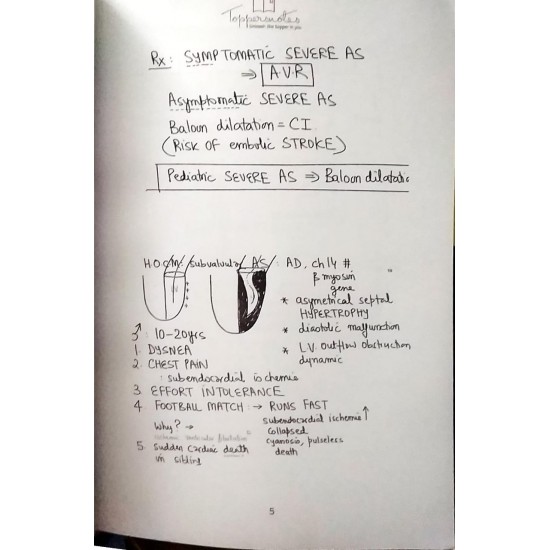 Toppersnotes
Unleash the topper in you
Rx: SYMPTOMATIC SEVERE AS
⇒ A.V.R
Asymptomatic SEVERE AS
Baloon dilatation = CI
(Risk of embolic STROKE)
Pediatric SEVERE AS ⇒ Baloon dilatatic
HOCM/Subvalvular AS: AD, ch14 #
β myosin
gene
* asymetrical septal
HYPERTROPHY
* diastolic malfunction
* L.V. outflow obstruction
dynamic
♂ 10-20yrs
1. DYSNEA
2. CHEST PAIN
: subendocardial ischemia
3 EFFORT INTOLERANCE
4 FOOTBALL MATCH: → RUNS FAST
subendocardial ischemia ↑
Why? → collapsed
cyanosis, pulseless
death
5. Sudden cardiac death
in sibling
5